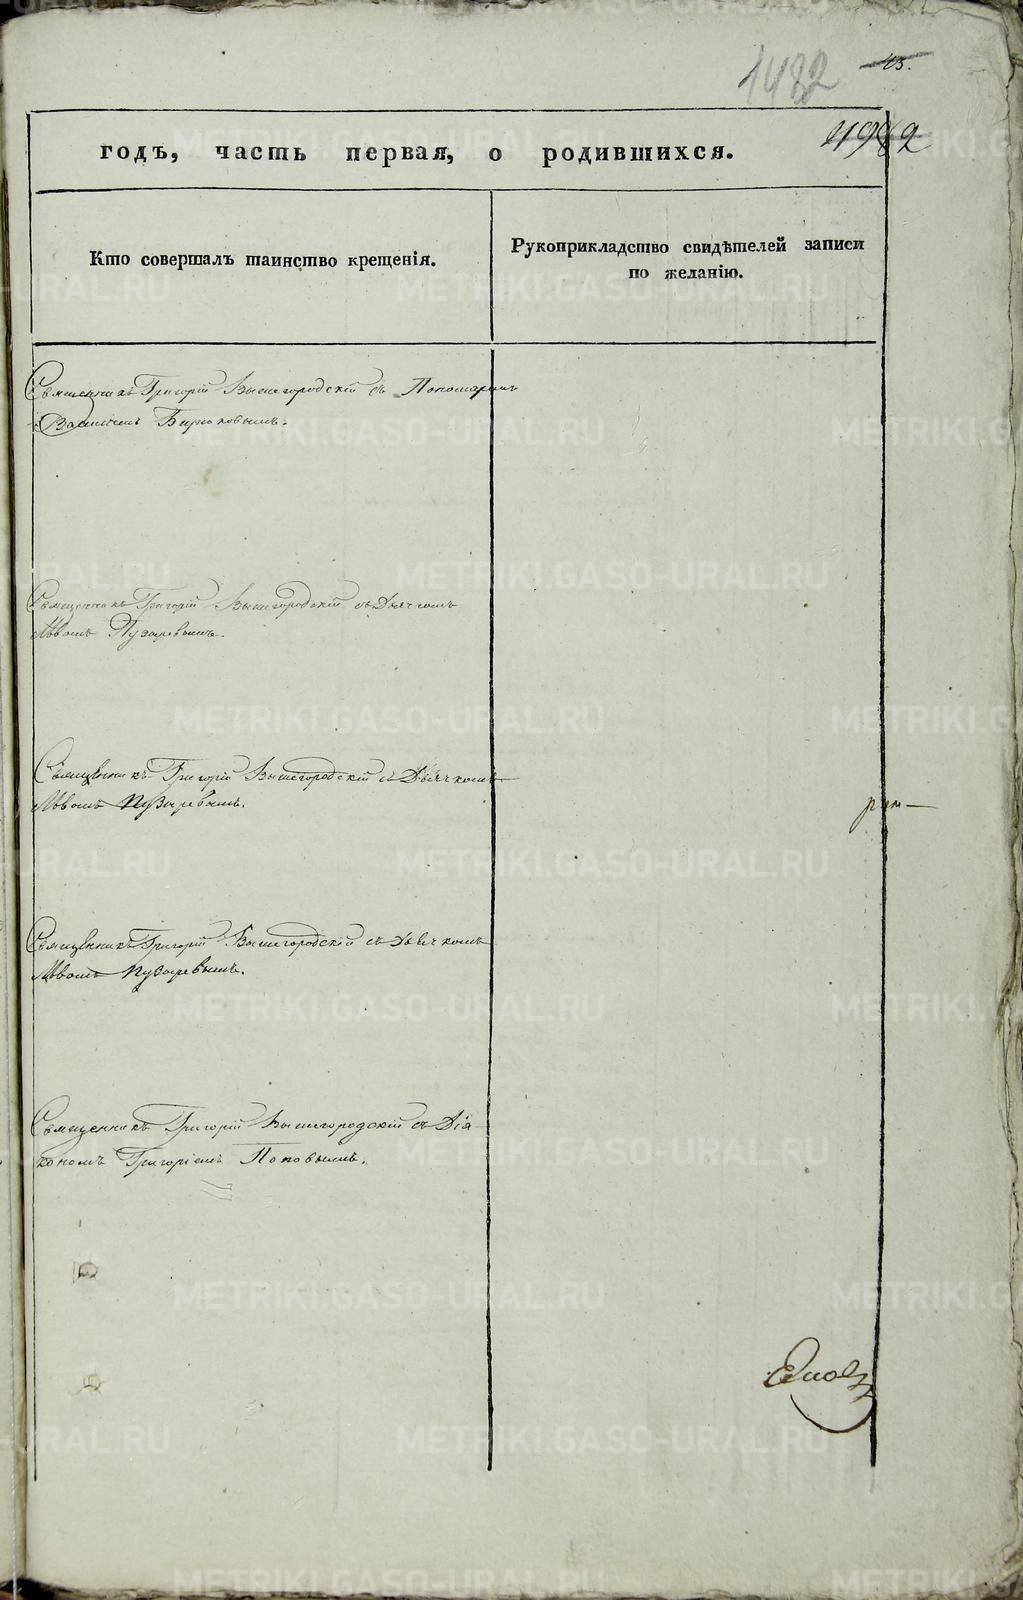 1482
43.
годъ, часть первая, о родившихся.
Кто совершалъ таинство крещенія.
Рукоприкладство свидѣтелей записи
по желанію.
Священникъ Григорій Вышегородскій съ Пономаремъ
Василіемъ Бирюковымъ.
Священникъ Григорій Вышегородскій съ Дьячкомъ
Львомъ Пузыревымъ.
Священникъ Григорій Вышегородскій съ Дьячкомъ
Львомъ Пузыревымъ.
Священникъ Григорій Вышегородскій съ Дьячкомъ
Львомъ Пузыревымъ.
Священникъ Григорій Вышегородскій съ Діа
кономъ Григоріемъ Поповымъ.
METRIKI.GASO-URAL.RU